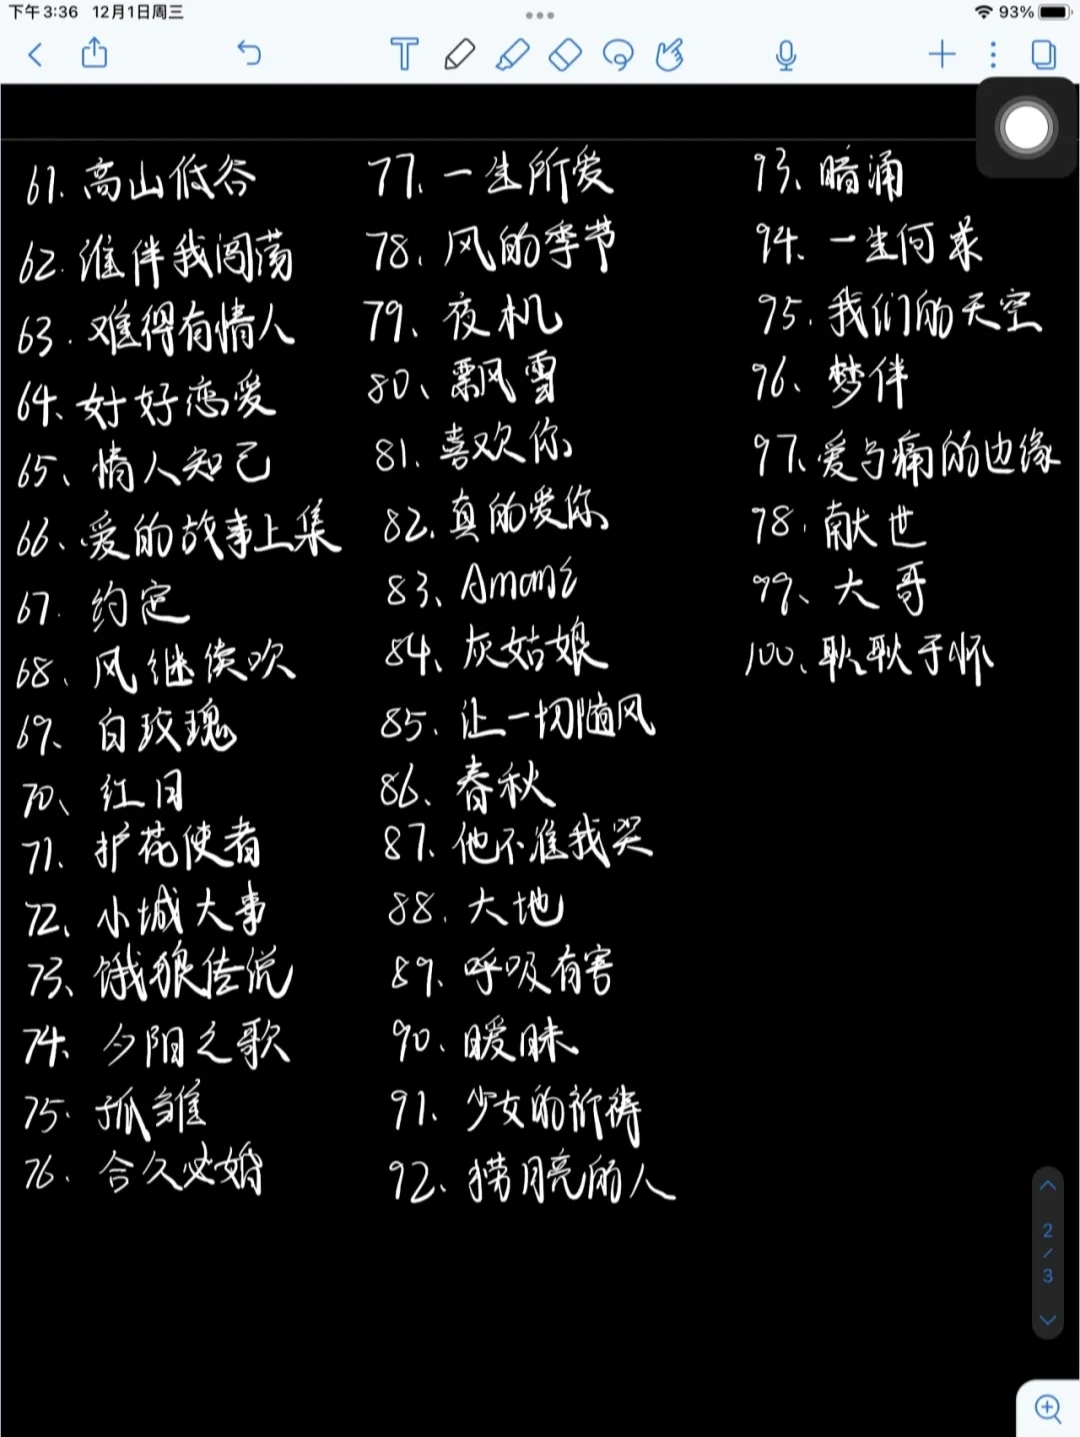 下午3:36 12月1日周三
93%
61. 高山低谷
62. 谁伴我闯荡
63. 难得有情人
64、好好恋爱
65、情人知己
66、爱的故事上集
67. 约定
68、风继续吹
69、白玫瑰
70、红日
71、护花使者
72、小城大事
73、饿狼传说
74、夕阳之歌
75. 孤雏
76. 合久必婚
77、一生所爱
78、风的季节
79、夜机
80、飘雪
81. 喜欢你
82、真的爱你
83、Amani
84、灰姑娘
85. 让一切随风
86、春秋
87. 他不准我哭
88. 大地
89、呼吸有害
90、暧昧
91、少女的祈祷
92、捞月亮的人
93、暗涌
94、一生何求
95. 我们的天空
96、梦伴
97、爱与痛的边缘
98. 献世
99、大哥
100、耿耿于怀
2
/
3